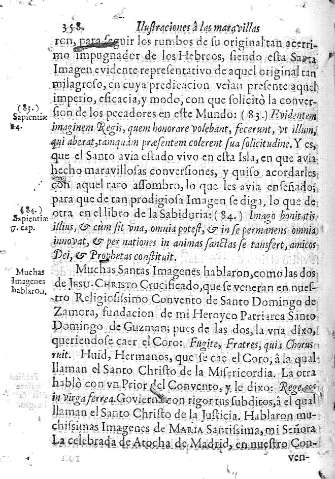 358. Ilustraciones à las maravillas
ren, para seguir los rumbos de su original tan acerri-
mo impugnador de los Hebreos, siendo esta Santa
Imagen evidente representativo de aquel original tan
milagroso, en cuya predicacion veìan presente aquel
imperio, eficacia, y modo, con que solicitò la conver-
sion de los pecadores en este Mundo: (83.) Evidentem
imaginem Regis, quem honorare volebant, fecerunt, vt illum,
qui aberat, tamquàm præsentem colerent sua solicitudine. Y es,
que el Santo avia estado vivo en esta Isla, en que avia
hecho maravillosas conversiones, y quiso acordarles
con aquel raro assombro, lo que les avia enseñado;
para que de tan prodigiosa Imagen se diga, lo que de
otra en el libro de la Sabiduria: (84.) Imago bonitatis
illius, & cùm sit vna, omnia potest, & in se permanens omnia
innovat, & per nationes in animas sanctas se tansfert, amicos
Dei, & Prophetas constituit.
Muchas Santas Imagenes hablaron, como las dos
de JESU-CHRISTO Crucificado, que se veneran en nuestro
Religiosissimo Convento de Santo Domingo de
Zamora, fundacion de mi Heroyco Patriarca Santo
Domingo de Guzman; pues de las dos, la vna dixo,
queriendose caer el Coro: Fugite, Fratres, quia Chorus
ruit. Huid, Hermanos, que se cae el Coro, à la qual
llaman el Santo Christo de la Misericordia. La otra
hablò con vn Prior del Convento, y le dixo: Rege eos
in virga ferrea. Govierna con rigor tus subditos, à el qual
llaman el Santo Christo de la Justicia. Hablaron mu-
chissimas Imagenes de MARIA Santissima, mi Señora
La celebrada de Atocha de Madrid, en nuestro Con-
ven-
(83.)
Sapientiæ
14.
(84.)
Sapientiæ
7. cap.
Muchas
Imagenes
hablarõ.